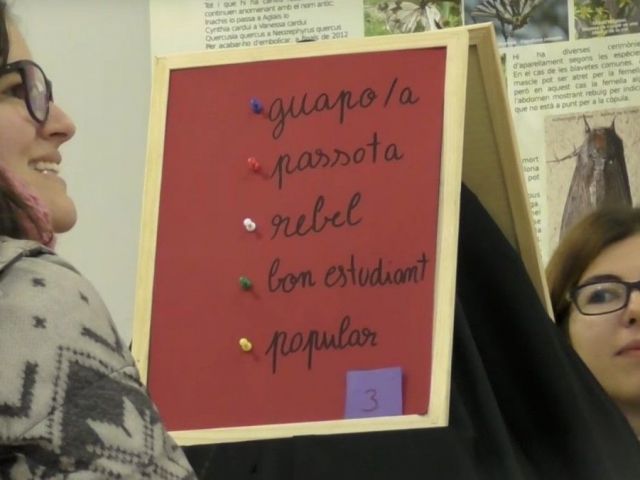 continuen anomenant amb el nom antic.
Inachis io passa a Aglais io
Cynthia cardui a Vanessa cardui
Quercusia quercus a Neozephyrus quercus
Per acabar-ho d'embolicar, a finals de 2012
Hi ha diverses
d'aparellament segons les espècie
En el cas de les blavetes comunes,
mascle pot ser atret per la femell
però en aquest cas la femella
l'abdomen mostrant rebuig per indic
que no està a punt per a la còpula.
mort
pot
guapo/a
passota
rebel
bon estudiant
popular
3